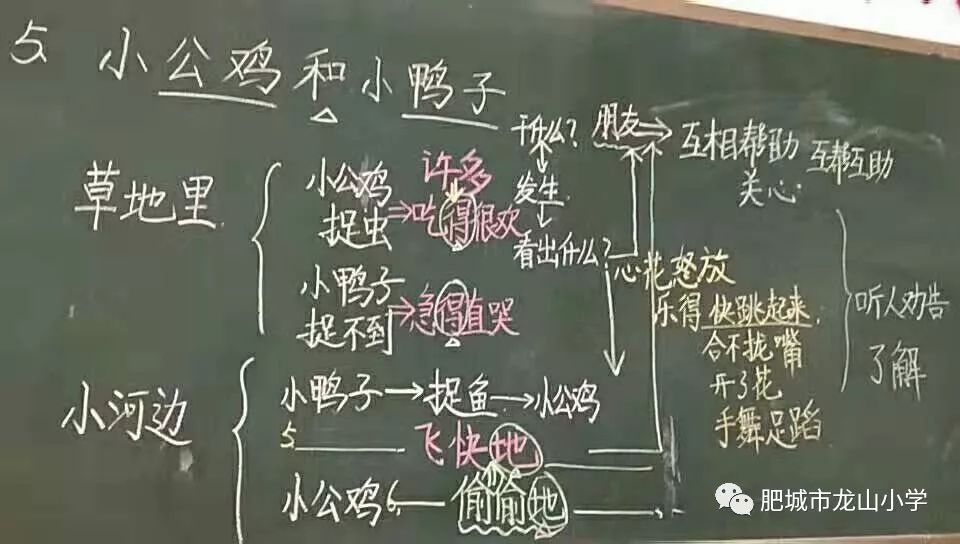 5 小公鸡和小鸭子
草地里
小公鸡
捉虫
许多
吃得很欢
小鸭子
捉不到
急得直哭
小河边
小鸭子 捉鱼 小公鸡
5 飞快地
小公鸡6 偷偷地
干什么?
发生
看出什么?
朋友
互相帮助 互帮互助
关心
心花怒放
乐得 快跳起来
合不拢嘴
开了花
手舞足蹈
听人劝告
了解
肥城市龙山小学